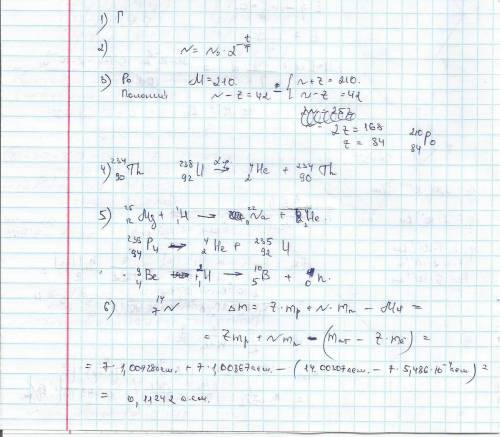 1) Г
2) N = N₀ · 2^(-t/T)
3) Po M = 210. { N + Z = 210.
Полоний N - Z = 42 - { N - Z = 42
2Z = 168
Z = 84 ²¹⁰₈₄Po
4) ²³⁴₉₀Th ²³⁸₉₂U → ⁴₂He + ²³⁴₉₀Th
5) ²⁵₁₂Mg + ¹₁H → ²²Na + ⁴₂He.
₉₄Pu → ⁴₂He + ²³⁵₉₂U
⁹₄Be + ²₁H → ¹⁰₅B + ¹₀n.
6) ¹⁴₇N Δm = Z·mp + N·mn - Mя
= Zmp + Nmn - (mат - Z·mē) =
= 7·1,00728 а.е.м. + 7·1,00867 а.е.м. - (14.00307 а.е.м. - 7·5,486·10⁻⁴ а.е.м) =
= 0,11242 а.е.м.